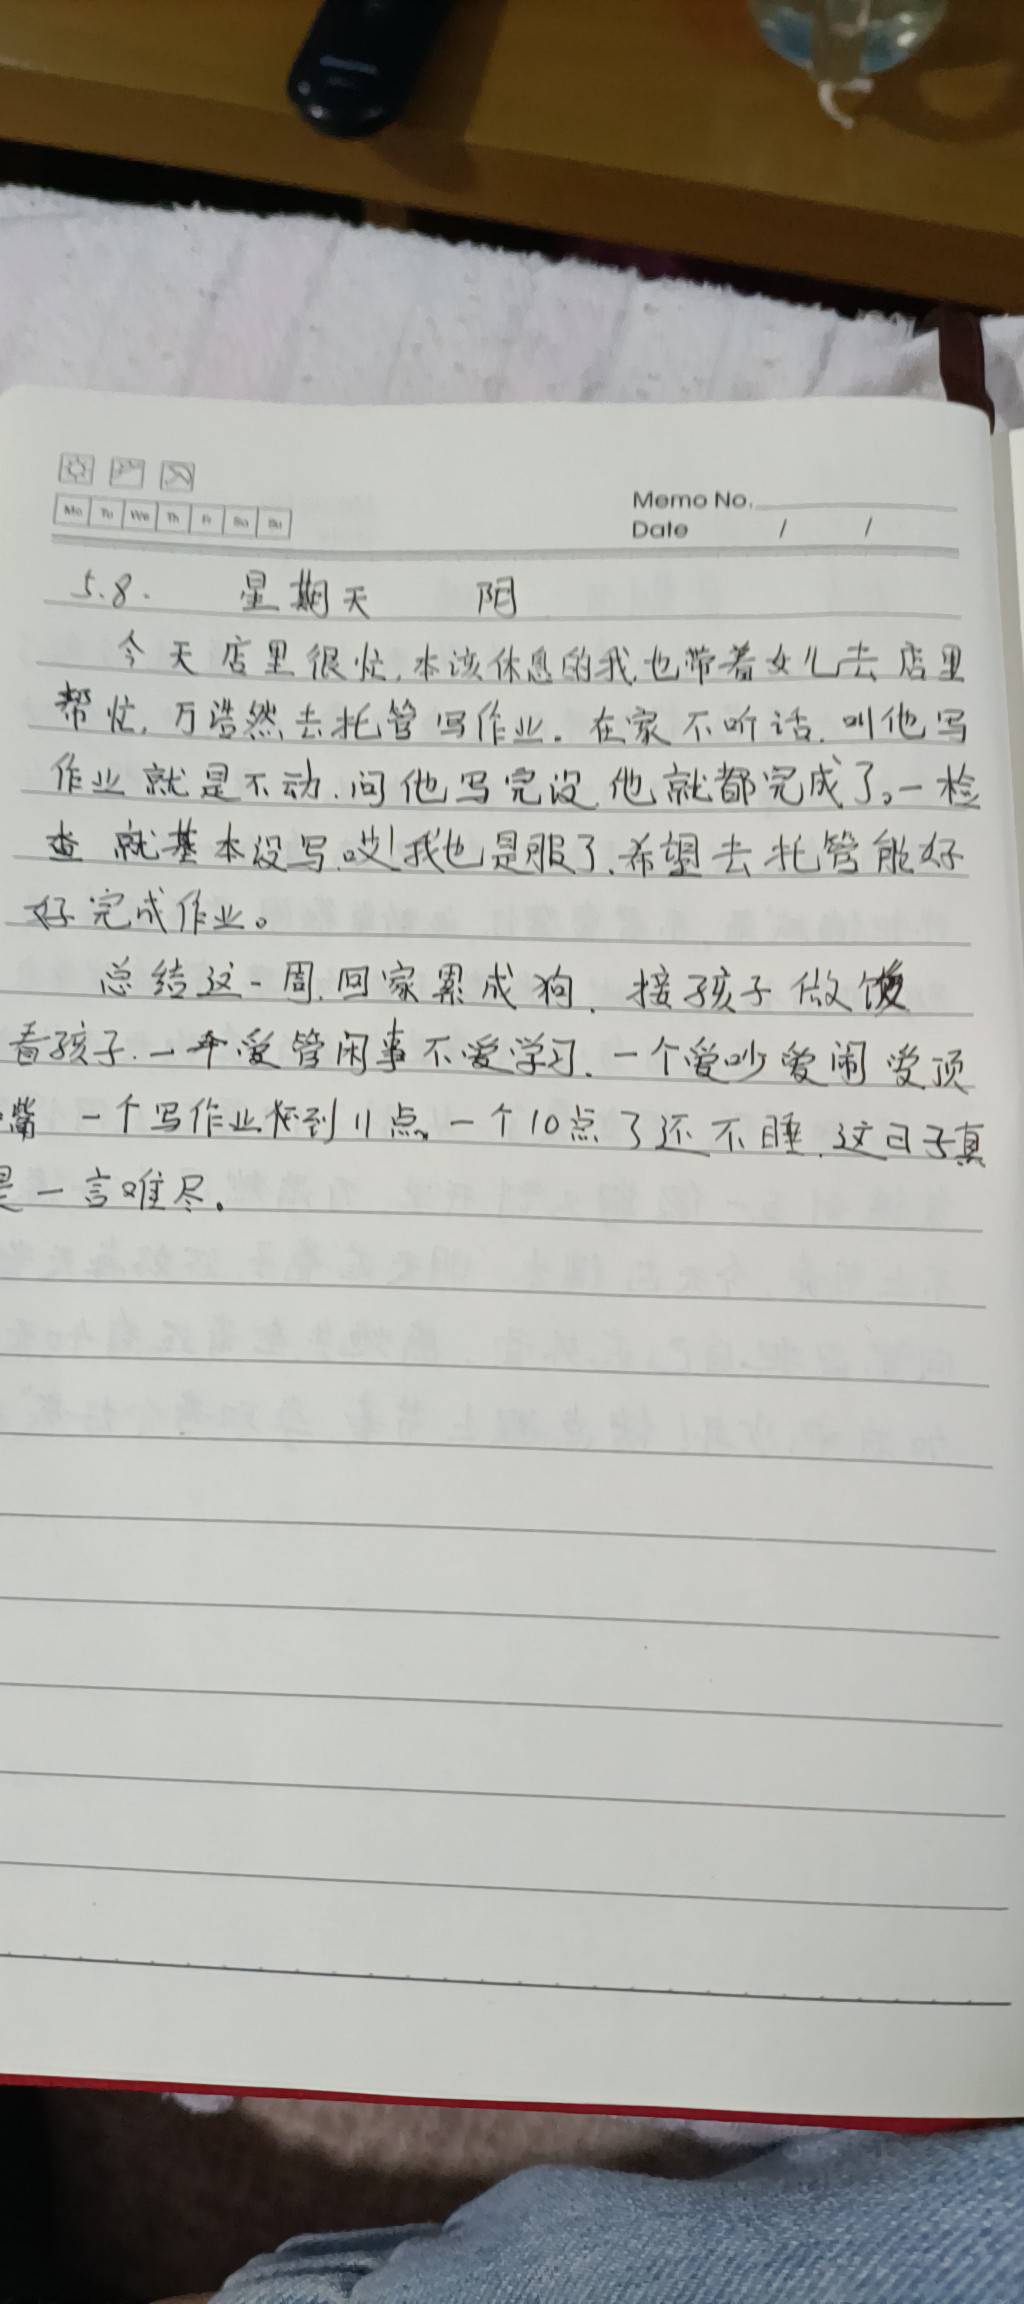 Mo Tu We Th Fr Sa Su
Memo No.
Date / /
5.8. 星期天 阴
今天店里很忙,本该休息的我,也带着女儿去店里
帮忙,万浩然去托管写作业.在家不听话.叫他写
作业就是不动.问他写完没,他就都完成了。一检
查就基本没写.哎!我也是服了.希望去托管能好
好完成作业。
总结这一周.回家累成狗.接孩子做饭
看孩子.一个爱管闲事不爱学习.一个爱吵爱闹爱顶
嘴 一个写作业 到11点,一个10点了还不睡.这日子真
是一言难尽.